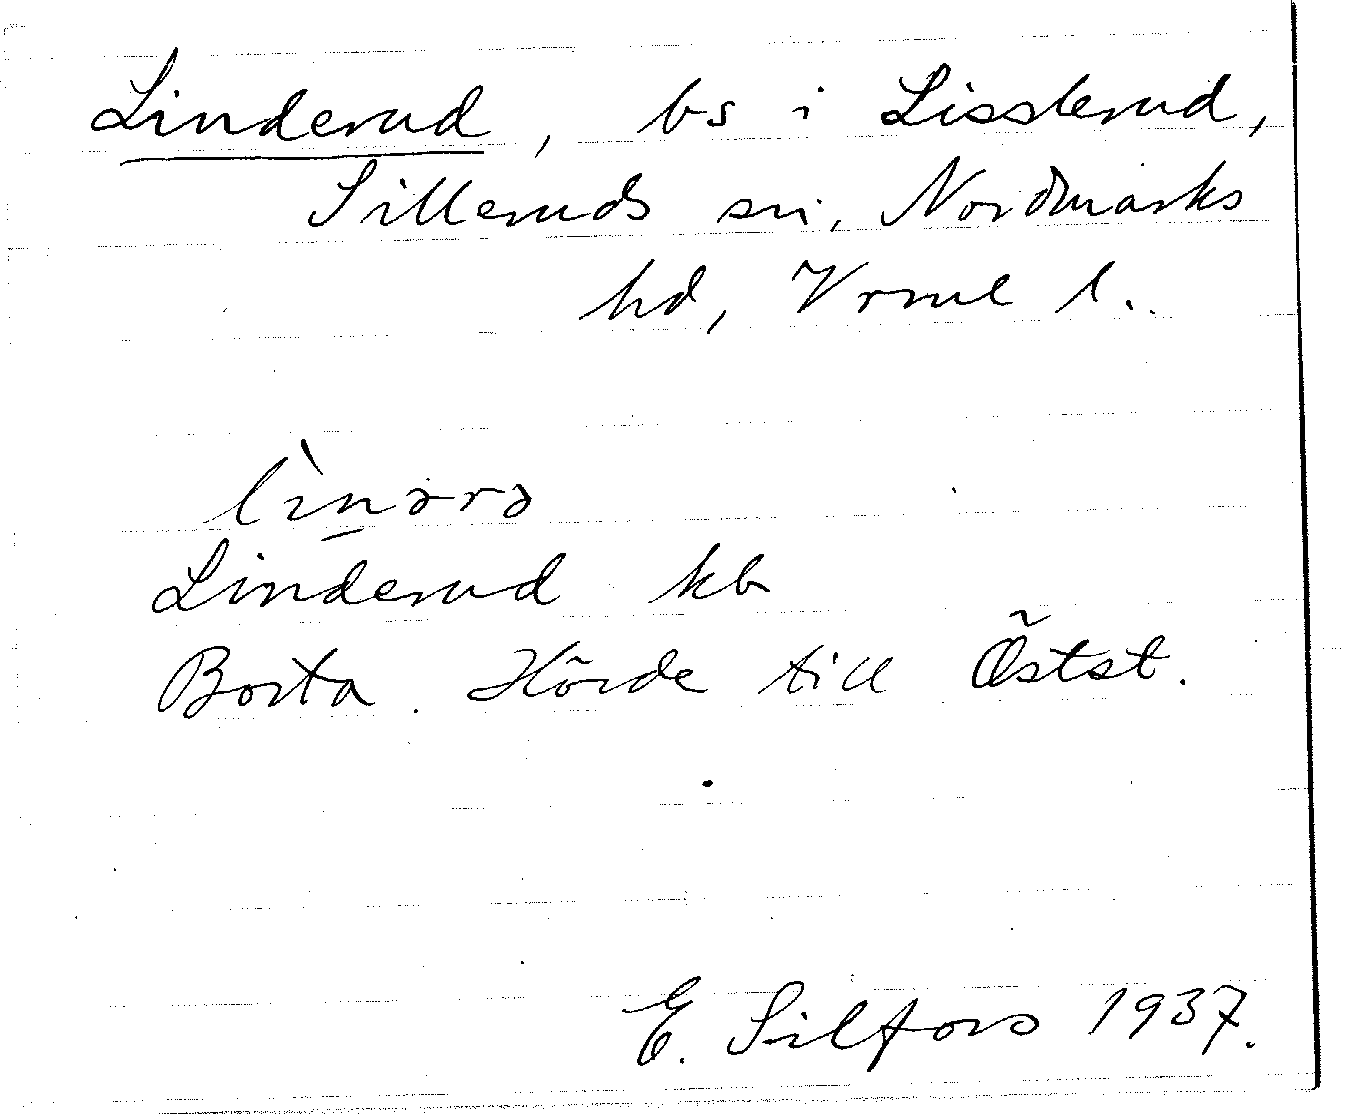 Linderud, bs i Lisslerud,
Silleruds sn, Nordmarks
hd, Vrml l.
lìnərə
Linderud kb
Borta. Hörde till Östst.
E. Silfors 1937.